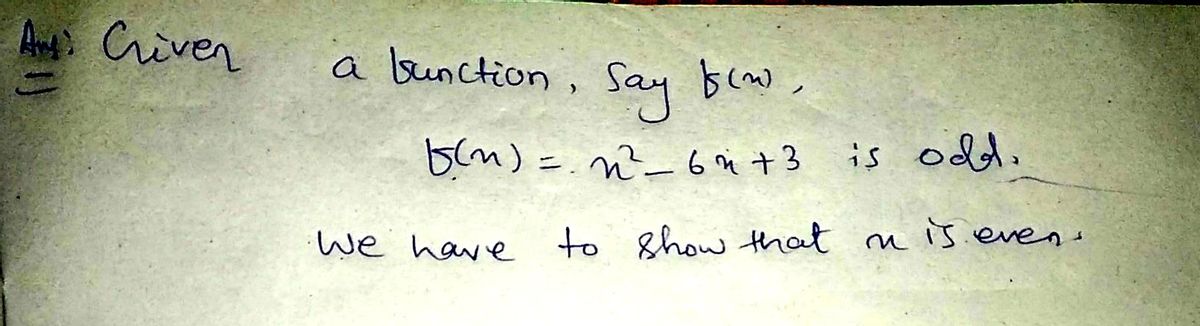 Ans: Given a function, say f(n),
f(n) = n² - 6n + 3 is odd.
We have to show that n is even.